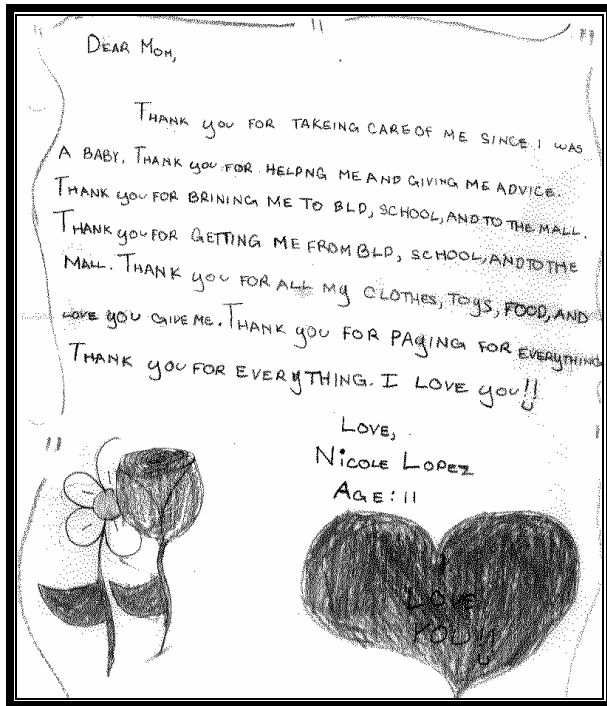 DEAR MOM,
THANK YOU FOR TAKEING CARE OF ME SINCE I WAS
A BABY. THANK YOU FOR HELPNG ME AND GIVING ME ADVICE.
THANK YOU FOR BRINING ME TO BLD, SCHOOL, AND TO THE MALL.
THANK YOU FOR GETTING ME FROM BLD, SCHOOL, AND TO THE
MALL. THANK YOU FOR ALL MY CLOTHES, TOYS, FOOD, AND
LOVE YOU GIVE ME. THANK YOU FOR PAYING FOR EVERYTHING
THANK YOU FOR EVERYTHING. I LOVE YOU!!
LOVE,
NICOLE LOPEZ
AGE: 11
LOVE
YOU!!